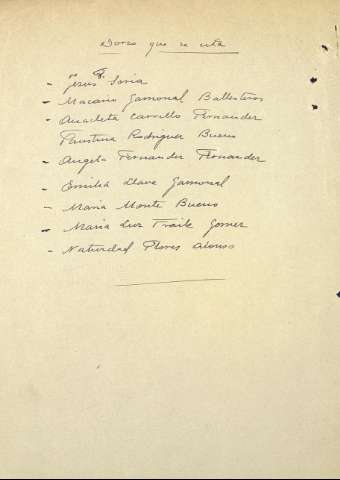 Dorso que se cita
- Jesus P. Soria
- Macario Gamonal Ballesteros
- Anacleta Carrillo Fernander
Faustina Rodriguer Bueno
- Angela Fernander Fernander
- Emilia Llave Gamonal
- Maria Monte Bueno
- Maria Luz Fraile Gomer
- Natividad Flores Alonso